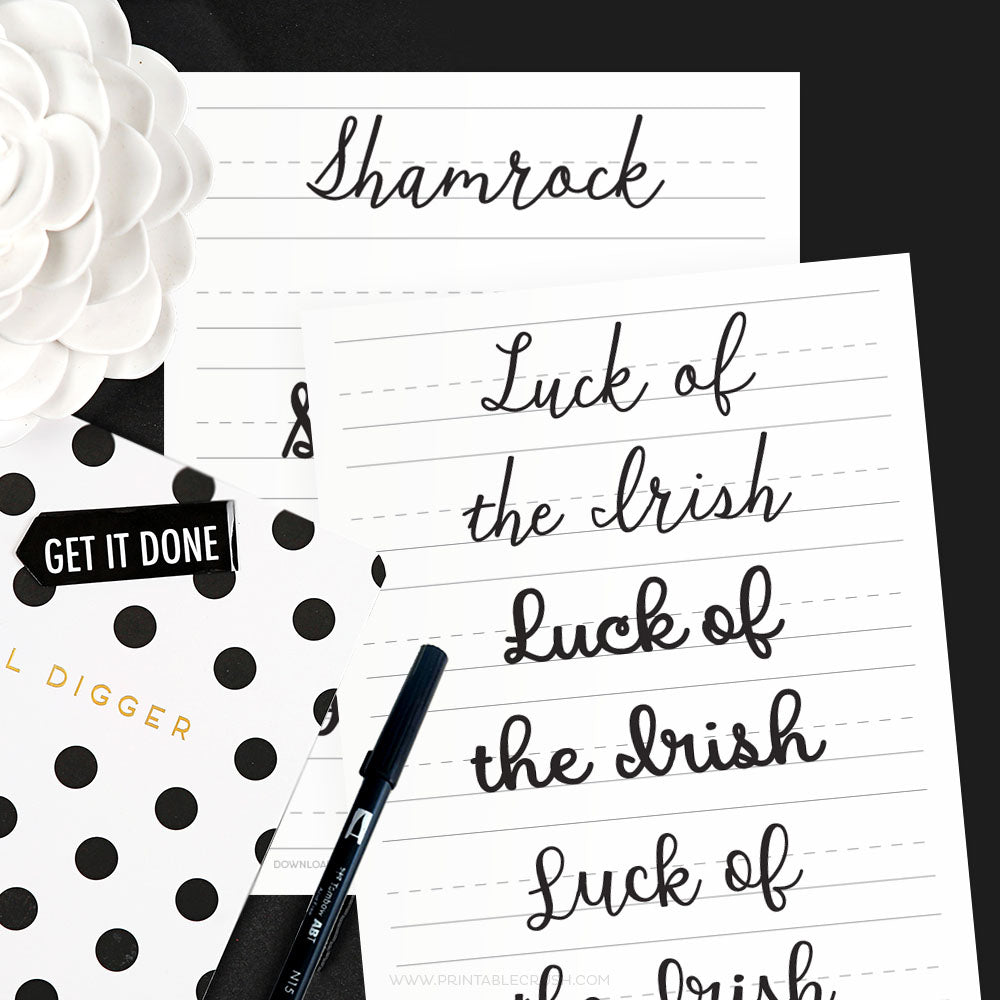 Shamrock
S
Luck of
the Irish
Luck of
the Irish
Luck of
the Irish
GET IT DONE
L DIGGER
Tombow ABT
N15
WWW.PRINTABLECRUSH.COM